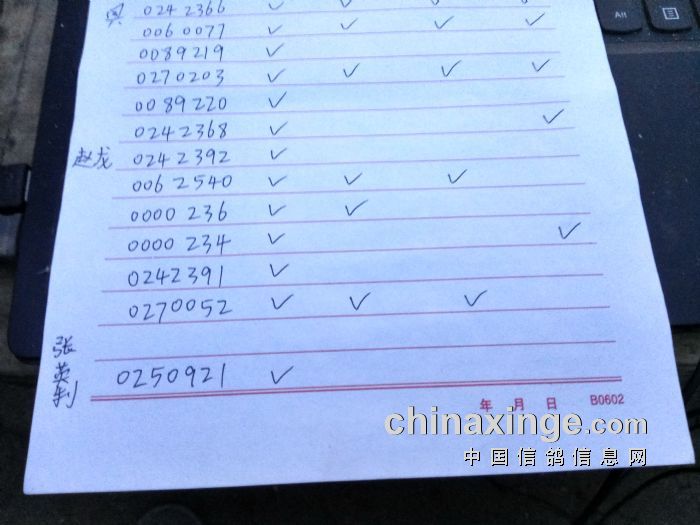 0242366 ✓ ✓ ✓ ✓
0060077 ✓ ✓ ✓ ✓
0089219 ✓
0270203 ✓ ✓ ✓ ✓
0089220 ✓
0242368 ✓ ✓
赵龙 0242392 ✓
0062540 ✓ ✓ ✓
0000236 ✓ ✓
0000234 ✓ ✓
0242391 ✓
0270052 ✓ ✓ ✓
张英利 0250921 ✓
年 月 日 B0602
chinaxinge.com
中国信鸽信息网
Alt